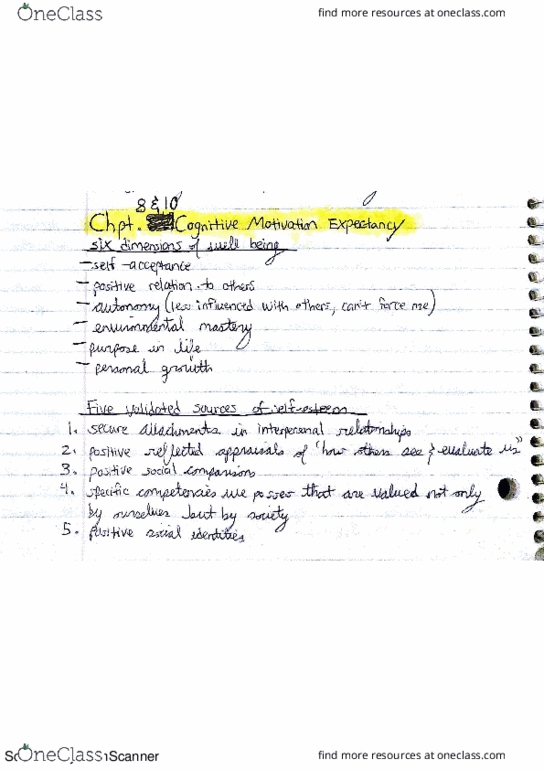 OneClass find more resources at oneclass.com
8 & 10
Chpt. Cognitive Motivation Expectancy
six dimensions of well being
- self-acceptance
- positive relation to others
- autonomy (less influenced with others, can't force me)
- environmental mastery
- purpose in life
- personal growth
Five validated sources of self-esteem
1. secure attachments in interpersonal relationships
2. positive reflected appraisals of "how others see & evaluate us"
3. positive social comparisons
4. specific competencies we posses that are valued not only
by ourselves but by society
5. positive social identities
OneClass Scanner find more resources at oneclass.com